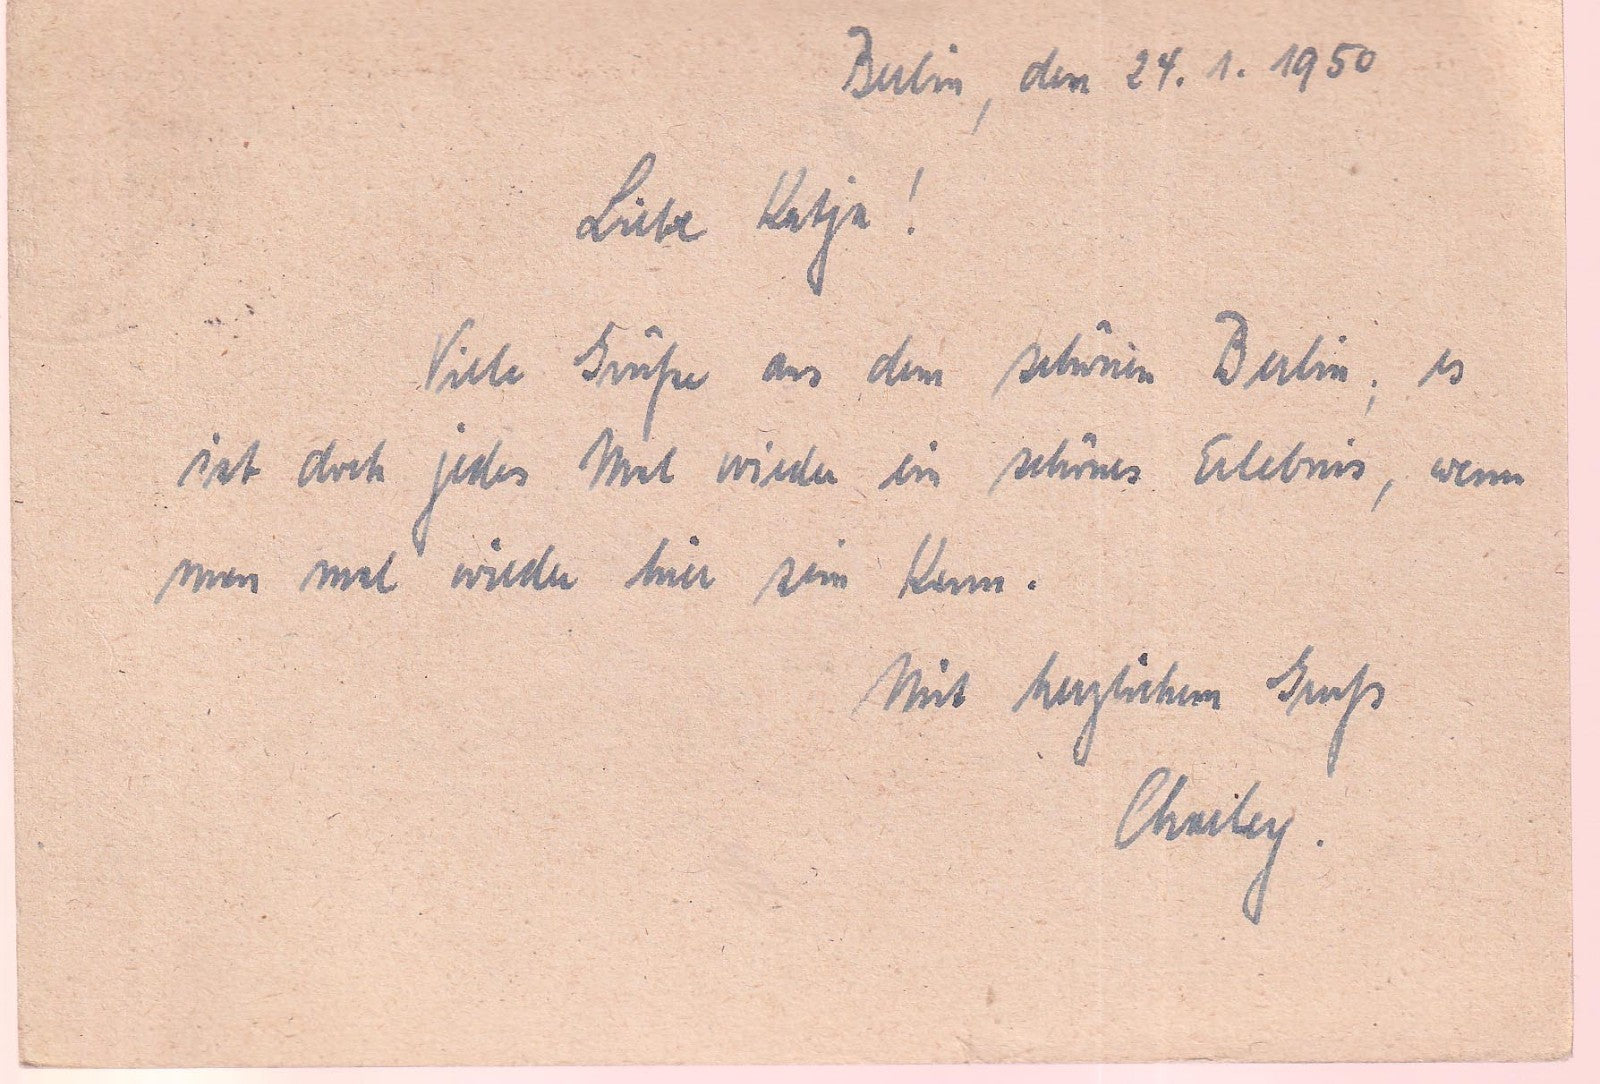 Berlin, den 24. 1. 1950
Liebe Katja!
Viele Grüße aus dem schönen Berlin, es
ist doch jedes Mal wieder ein schönes Erlebnis, wenn
man mal wieder hier sein kann.
Mit herzlichem Gruß
Charley.